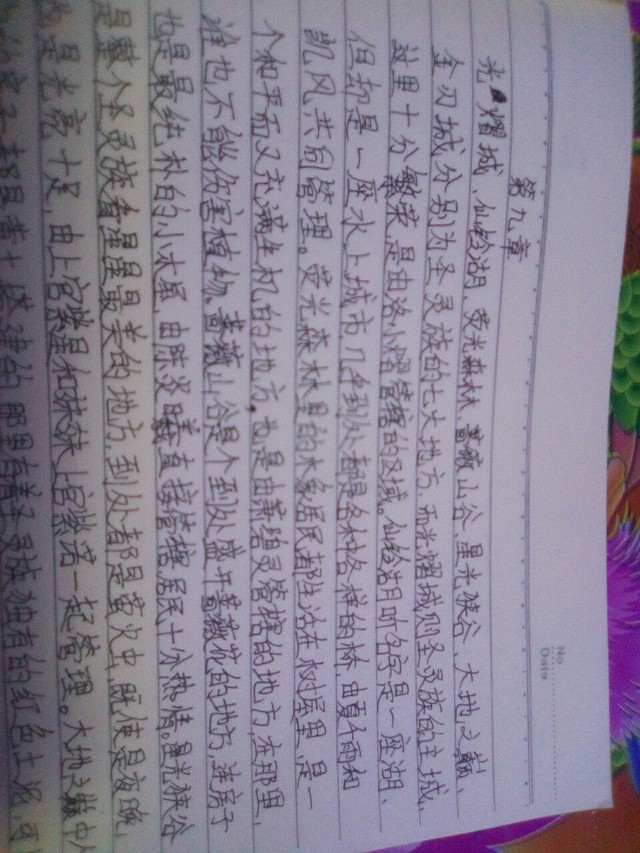 No
Date
第九章
光熠城、仙鲶湖、荧光森林、蔷薇山谷、星光狭谷、大地之巅、
金刃城分别为圣灵族的七大地方。而光熠城则圣灵族的主城,
这里十分繁荣是由洛小熠管辖的区域。仙鲶湖听名字是一座湖、
但却是一座水上城市几乎到处都是各种各样的桥,由夏雨和
凯风共同管理。荧光森林里的大家居民都生活在树屋里,是一
个和平而又充满生机的地方,也是由萧碧灵管辖的地方,在那里,
谁也不能伤害植物、蔷薇山谷是个到处盛开蔷薇花的地方,连房子
也是最纯朴的小木屋,由陈炎直接管辖,居民十分热情。星光狭谷
是整个圣灵族看星星最美的地方,到处都是萤火虫,既使是夜晚,
也是光亮十足,由上官紫星和妹妹上官紫诺一起管理。大地之巅中
都是黄土搭建的,那里有着圣灵族独有的红色土泥,可